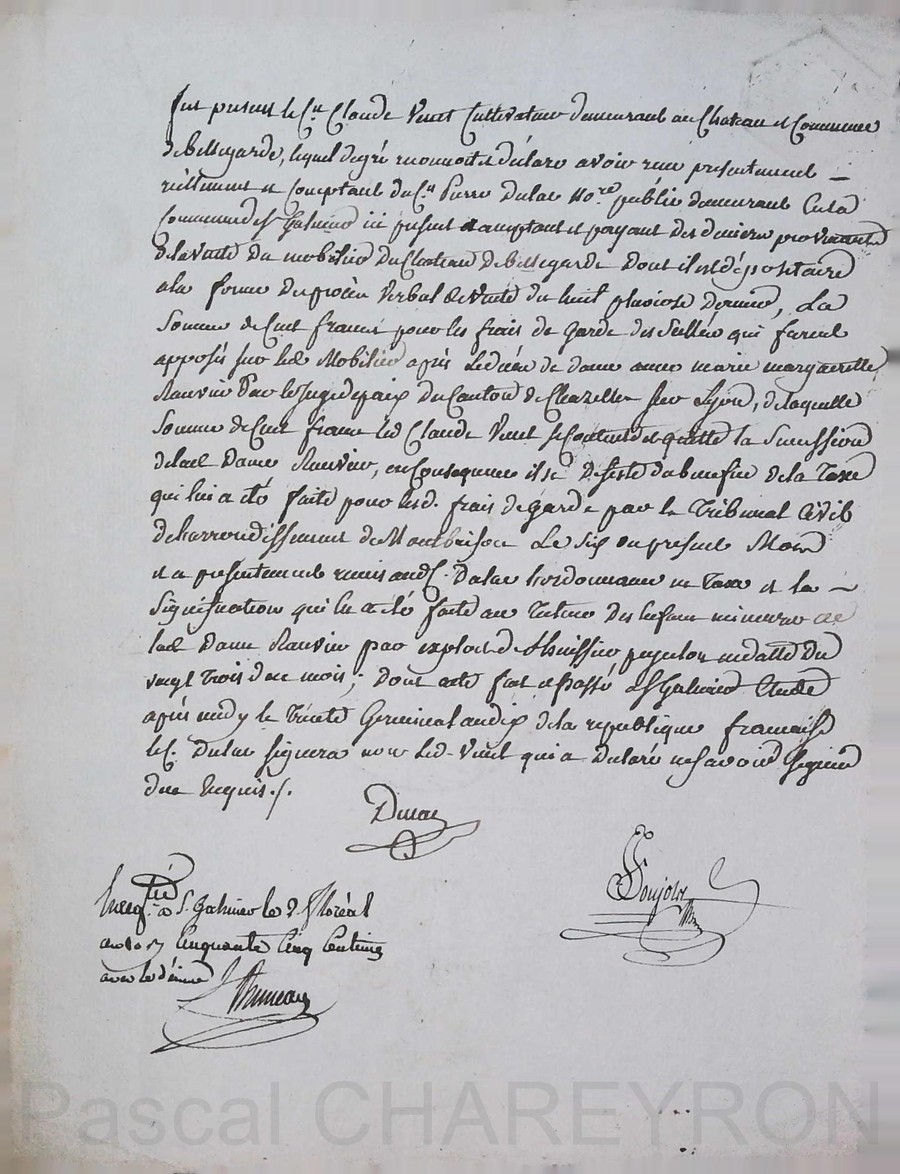 fut présent le Cn Claude Vinet Cultivateur demeurant au Chateau et Commune
de Bellegarde, lequel degré reconnoit et déclare avoir reçu présentement –
réellement et Comptant du Cn Pierre Dulac No.re public demeurant en la
Commune de St Galmier ici présent et acceptant et payant des deniers provenants
de la vente du mobilier du Chateau de Bellegarde dont il est dépositaire
a la forme du procès verbal de vente du huit pluviose dernier, La
Somme de Cent francs pour les frais de garde des Scellés qui furent
apposés sur led Mobilier après le décès de dame anne marie marguerite
Ranvier Par le Juge de paix du Canton de Chazelles sur Lyon, de laquelle
Somme de Cent francs led Claude Vinet se Contente et quitte la Succession
de lad Dame Ranvier, en Conséquence il se desiste du benefice de la Taxe
qui lui a été faite pour lesd. frais de garde par le Tribunal Civil
de l'arrondissement de Montbrison Le six du présent Mois
et a présentement remis aud C. Dulac l'ordonnance en Taxe et la –
Signification qui en a été faite au Tuteur des enfans mineurs de
lad Dame Ranvier par exploit de l'huissier en datte du
vingt trois de ce mois; Dont acte fait et Passé a St Galmier Etude
après midy le Trente Germinal an dix de la republique francaise
le C. Dulac signera non led. Vinet qui a Déclaré ne Savoir Signer
de ce Enquis ./.
Dulac
Ponjol
Enreg.tré a S. Galmier le 2 floréal
an 10 Cinquante Cinq Centimes
avec le décime
Pascal CHAREYRON